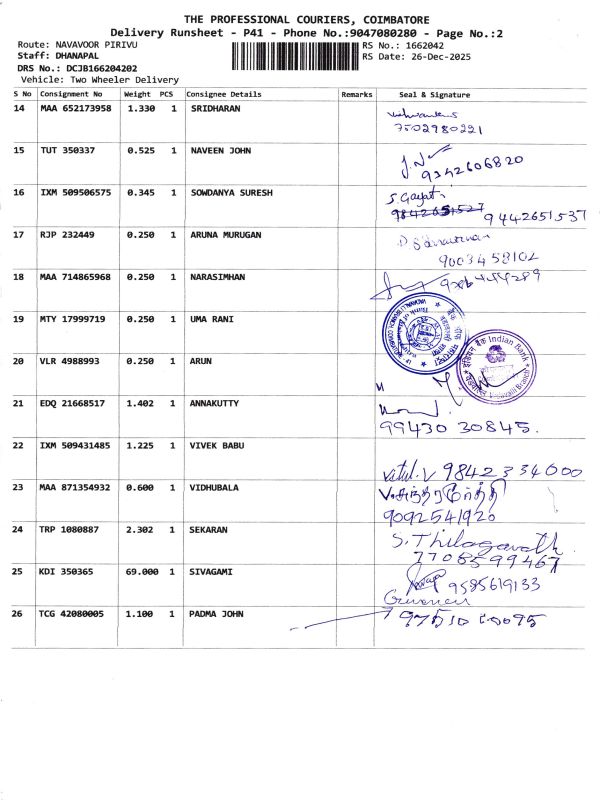 THE PROFESSIONAL COURIERS, COIMBATORE
Delivery Runsheet - P41 - Phone No.:9047080280 - Page No.:2
Route: NAVAVOOR PIRIVU RS No.: 1662042
Staff: DHANAPAL RS Date: 26-Dec-2025
DRS No.: DCJB166204202
Vehicle: Two Wheeler Delivery
S No Consignment No Weight PCS Consignee Details Remarks Seal & Signature
14 MAA 652173958 1.330 1 SRIDHARAN
7502980221
15 TUT 350337 0.525 1 NAVEEN JOHN J.N
9342606820
16 IXM 509506575 0.345 1 SOWDANYA SURESH S Gayatri
9442651537
17 RJP 232449 0.250 1 ARUNA MURUGAN
9003458102
18 MAA 714865968 0.250 1 NARASIMHAN
19 MTY 17999719 0.250 1 UMA RANI
Indian Bank
20 VLR 4988993 0.250 1 ARUN
21 EDQ 21668517 1.402 1 ANNAKUTTY
99430 30845.
22 IXM 509431485 1.225 1 VIVEK BABU
9842334000
23 MAA 871354932 0.600 1 VIDHUBALA
9092541920
24 TRP 1080887 2.302 1 SEKARAN S. Thilagavathi
7708599467
25 KDI 350365 69.000 1 SIVAGAMI
9585619133
26 TCG 42080005 1.100 1 PADMA JOHN